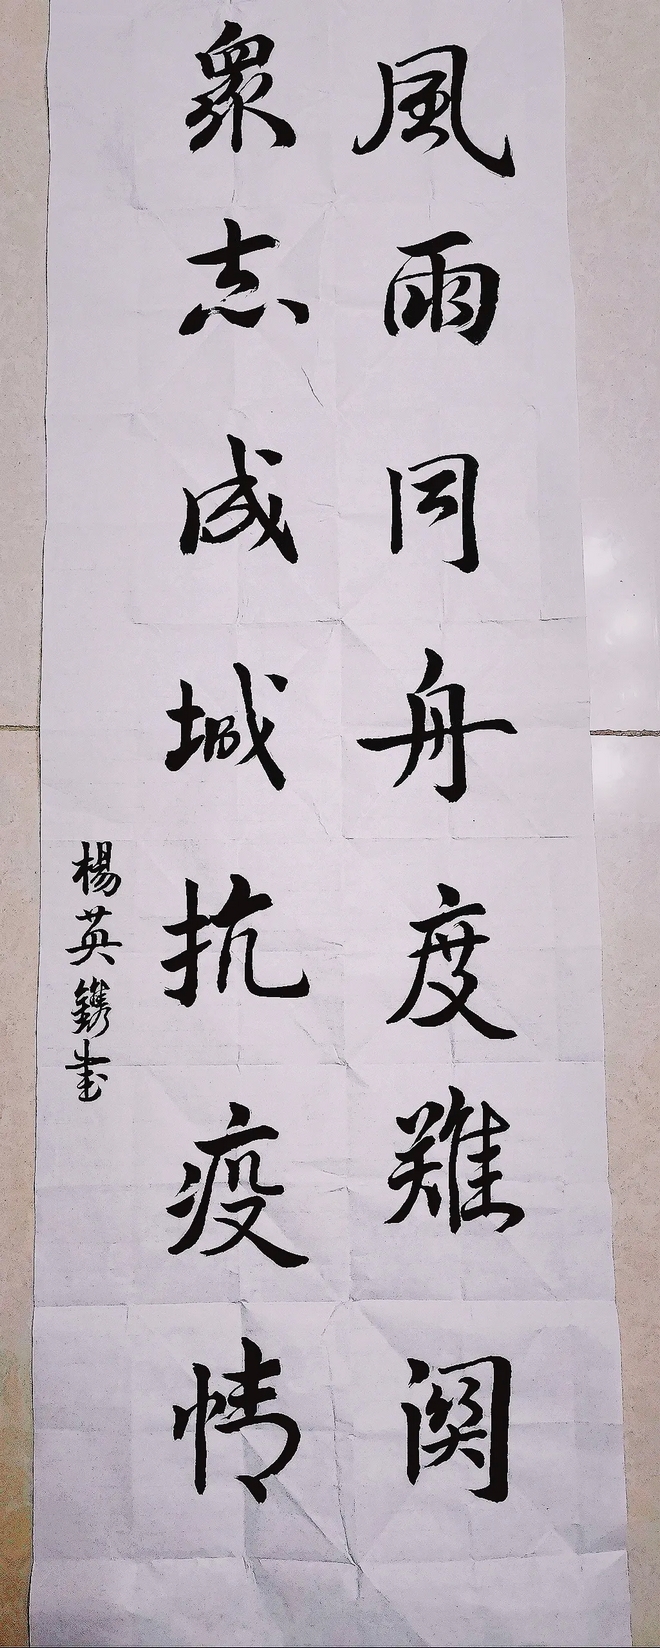 風雨同舟度難関
衆志成城抗疫情
楊英鐫书